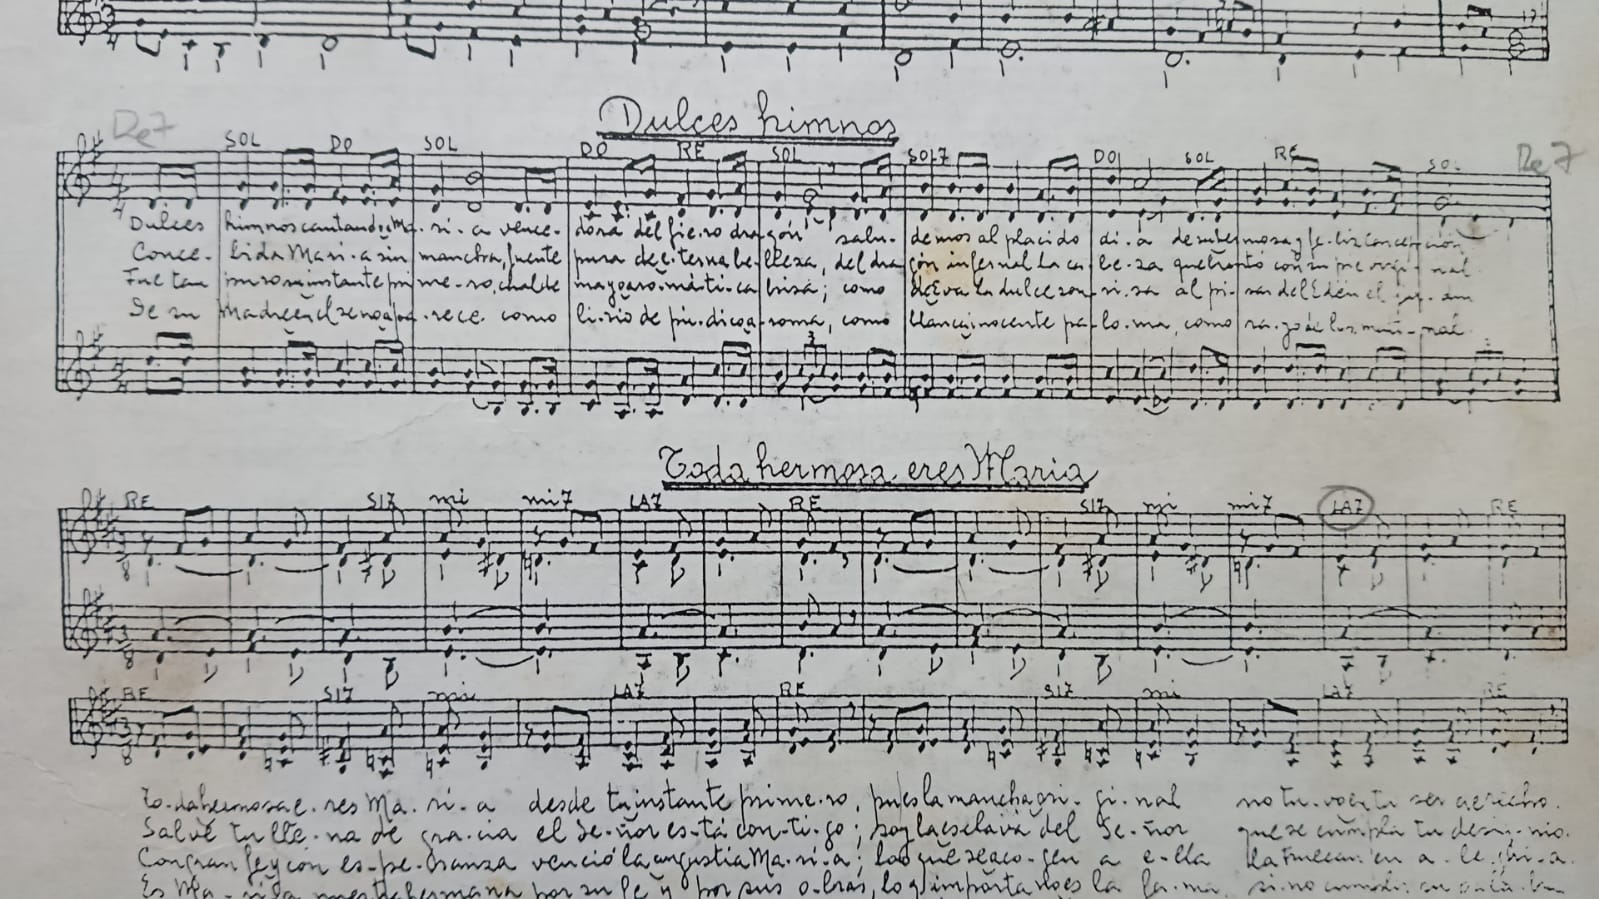 Dulces himnos
Re7
SOL DO SOL DO RE SOL SOL7 DO SOL RE SOL
Re7
Dulces himnos cantando a Ma-ri-a vence-dora del fie-ro dragón salu-demos al placido di-a de su hermosa y fe-liz concepción
Conce-bida Mari-a sin mancha, fuente pura de eterna be-lleza, del dragón infernal la ca-be-za quebrantó con su pie nal
Fue tan puro su instante pri-me-ro, cual de mayo aro-máti-ca brisa; como de Eva la dulce son-ri-sa al pi-sar del Edén el
De su Madre en el seno a-pa-rece como li-rio de pu-dico a-roma, como blanca inocente pa-lo-ma, como ra-yo de luz nal
3
Toda hermosa eres Maria
RE SI7 mi mi7 LA7 RE SI7 mi mi7 LA7 RE
RE SI7 mi LA7 RE SI7 mi LA7 RE
To-da hermosa e-res Ma-ri-a desde tu instante prime-ro, pues la mancha ori-gi-nal no tu-vo en ti ser
Salve tu lle-na de gra-cia el Se-ñor es-tá con-ti-go; soy la esclava del Se-ñor que se cumpla tu
Con gran fe y con es-pe-ranza venció la angustia Ma-ri-a; los que se aco-gen a e-lla la truecan en a-le-gri-a.
Es Ma-ri-a nuestra hermana por su fe y por sus o-bras, lo q' importa no es la fa-ma, si-no